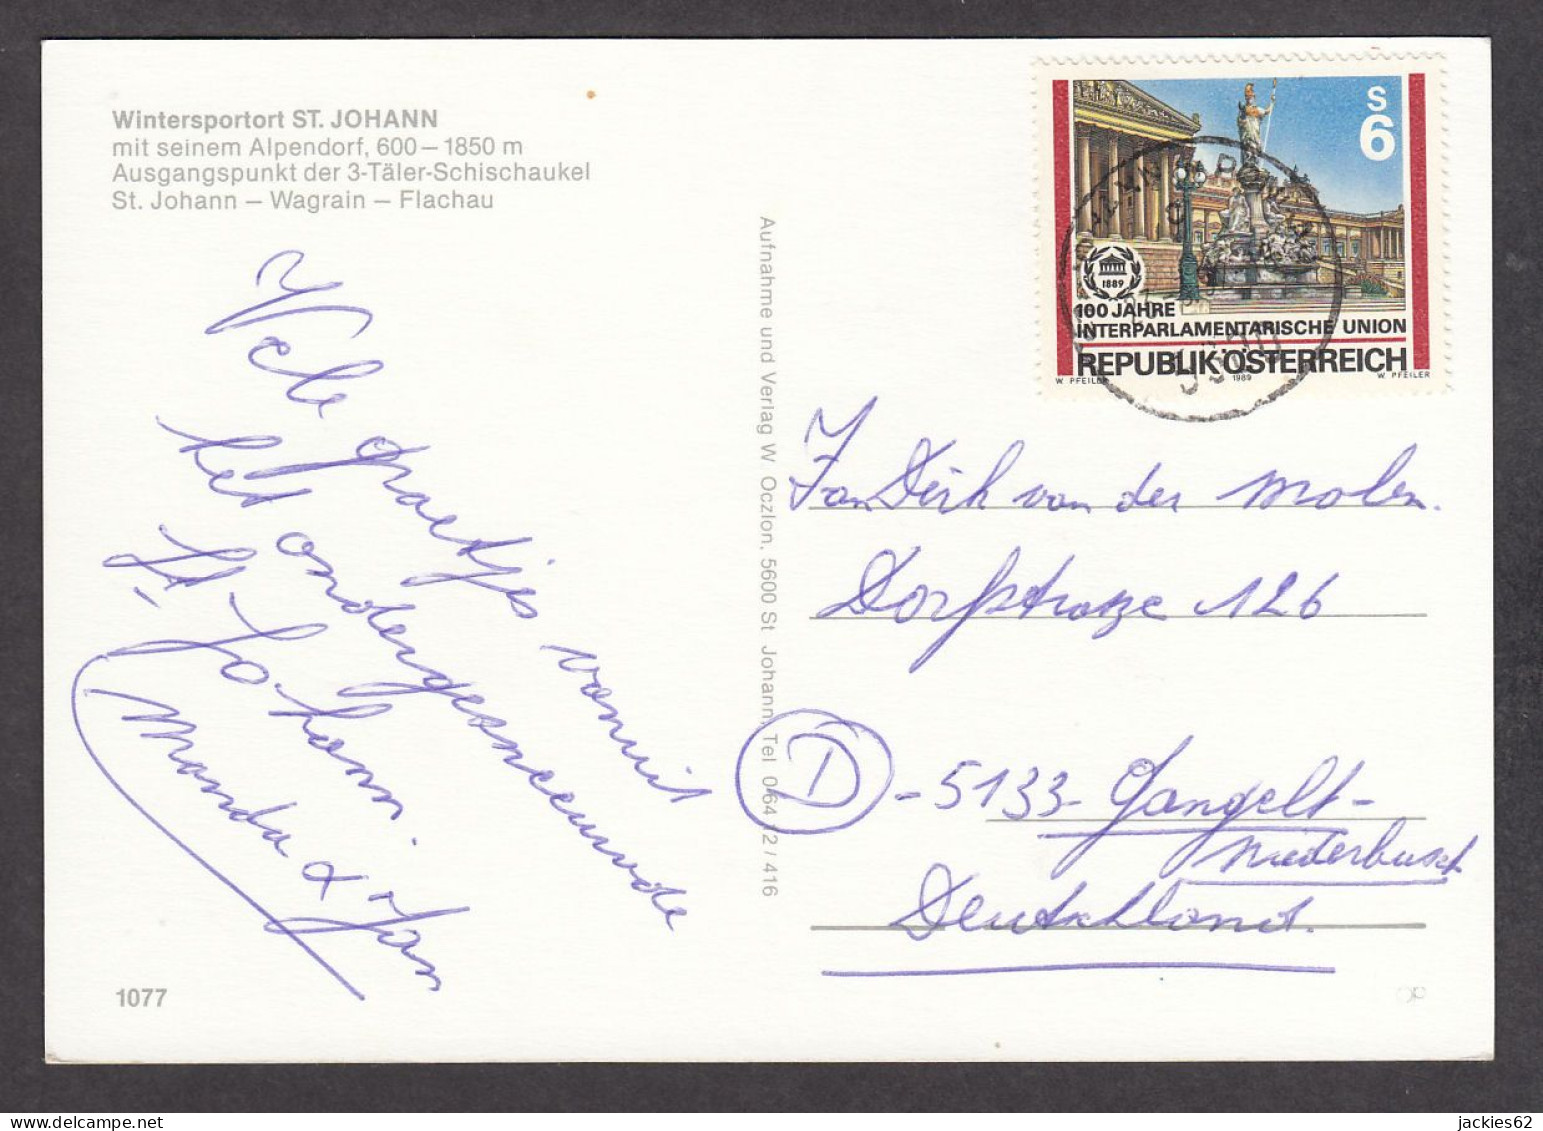 Wintersportort ST. JOHANN
mit seinem Alpendorf, 600 – 1850 m
Ausgangspunkt der 3-Täler-Schischaukel
St. Johann – Wagrain – Flachau
Vele groetjes vanuit
het ondergesneeuwde
St. Johann.
Manda & Jan
1077
Aufnahme und Verlag W. Oczlon, 5600 St. Johann, Tel. 0 64 12 / 416
S
6
1889
100 JAHRE
INTERPARLAMENTARISCHE UNION
REPUBLIK ÖSTERREICH
W. PFEILER 1989 W. PFEILER
Fam Dirk van der Molen.
Dorfstrasze 126
D - 5133 - Gangelt -
Niederbusch
Deutschland.
jackies62